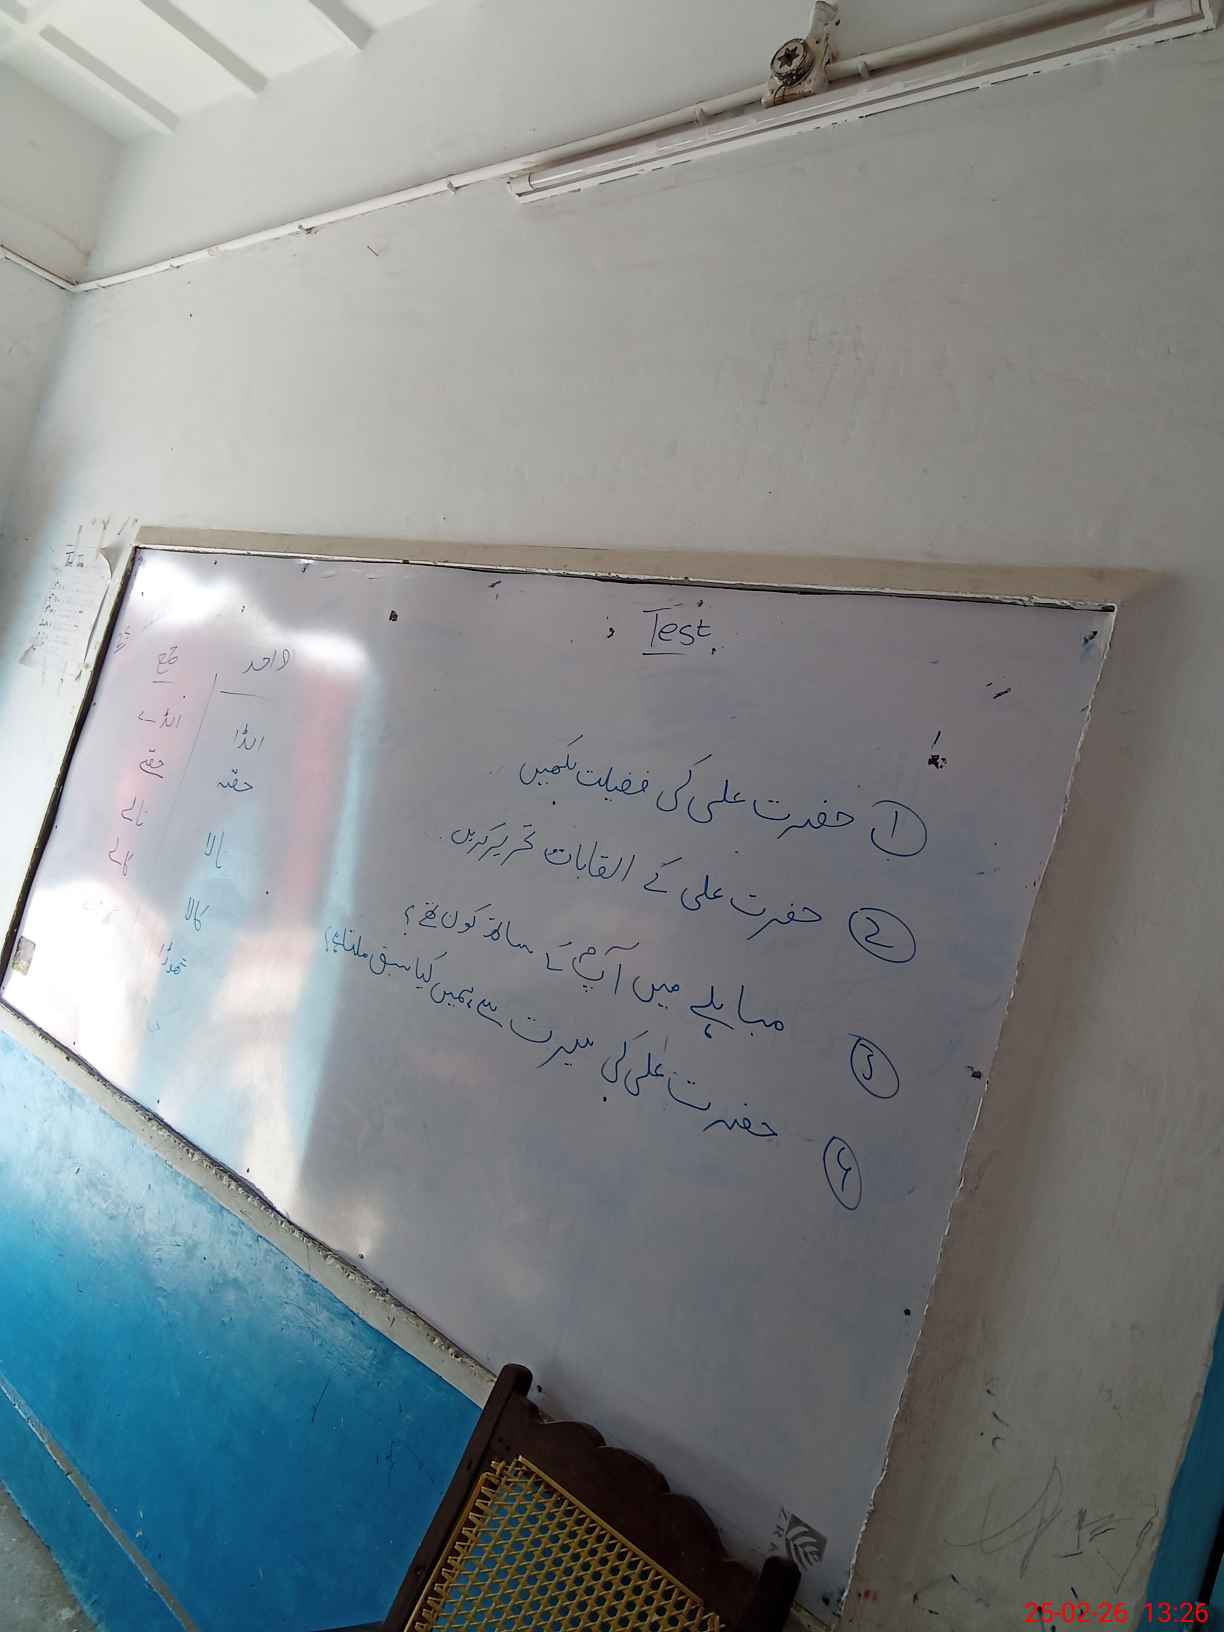 Test
① حضرت علی کی فضیلت لکھیں
② حضرت علی کے القابات تحریر کریں۔
③ مباہلے میں آپؐ کے ساتھ کون تھے؟
④ حضرت علی کی سیرت سے ہمیں کیا سبق ملتا ہے؟
واحد جمع
انڈا انڈے
حقہ حقے
نالا نالے
کالا کالے
KRA
25-02-26 13:26